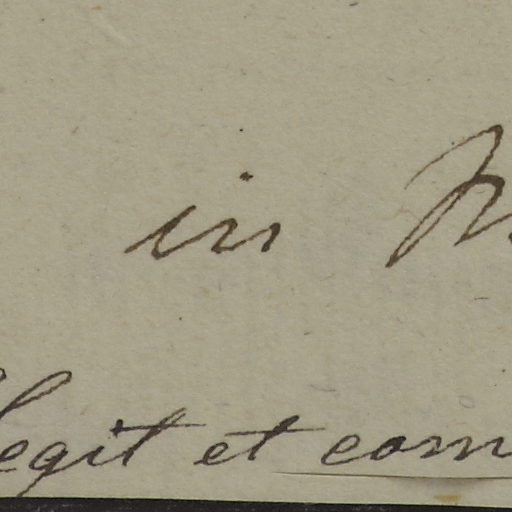 in
legit et com